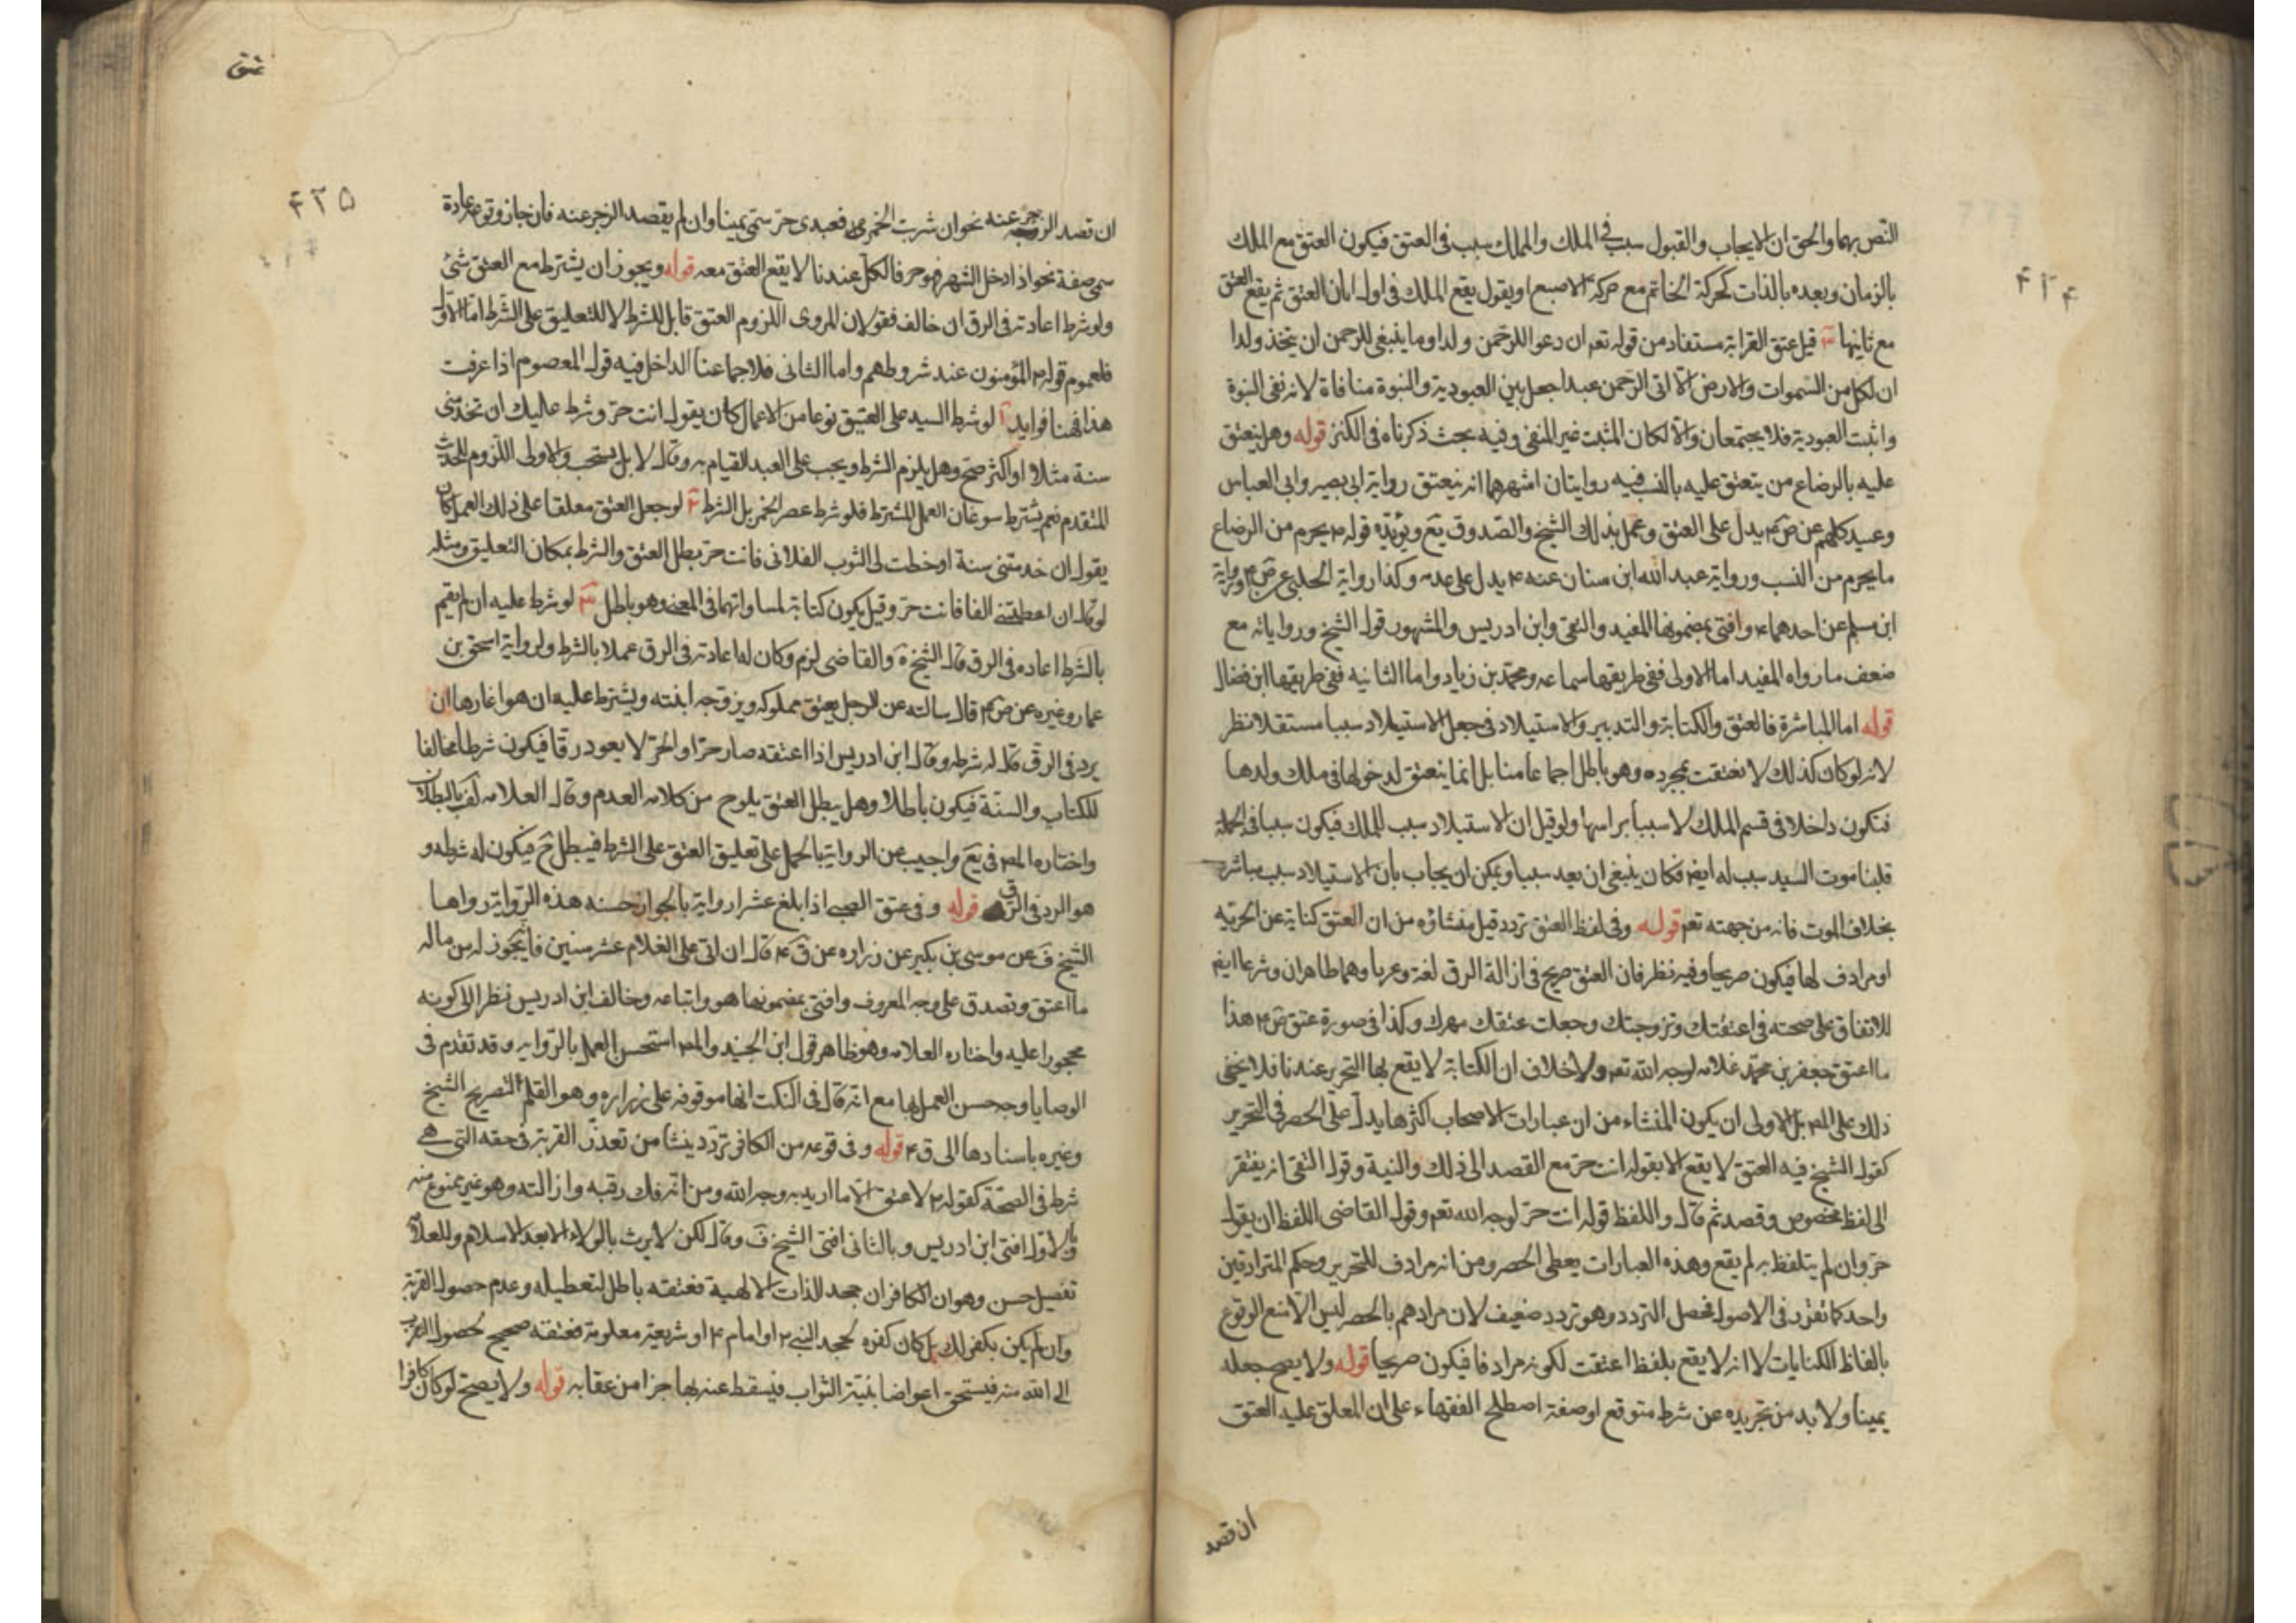 ۴۲۴
النص بهما والحق ان الايجاب والقبول سبب في الملك والملك سبب في العتق فيكون العتق مع الملك
بالزمان وبعده بالذات كحركة الخاتم مع حركة الاصبع او يقول يقع الملك في اول ان العتق ثم يقع العتق
مع ثانيها ٣ قيل عتق القرابة مستفاد من قوله تعم ان دعوا للرحمن ولدا وما ينبغي للرحمن ان يتخذ ولدا
ان كل من السموات والارض الا اتى الرحمن عبدا جعل بين العبودية والبنوة منافاة لانه نفى البنوة
واثبت العبودية فلا يجتمعان والا لكان المثبت غير المنفى وفيه بحث ذكرناه في الكنز قوله وهل ينعتق
عليه بالرضاع من ينعتق عليه بالنسب فيه روايتان اشهرهما انه ينعتق رواية ابى بصير وابى العباس
وعبيد كلهم عن ص ع يدل على العتق وعمل بذلك الشيخ والصدوق يع ويؤيده قوله ع يحرم من الرضاع
ما يحرم من النسب ورواية عبد الله ابن سنان عنه ع يدل على عدمه وكذا رواية الحلبي عن ص ع ورواية
ابن مسلم عن احدهما ع وافتى بمضمونها المفيد والتقى وابن ادريس والمشهور قول الشيخ ورواياته مع
ضعف ما رواه المفيد اما الاولى ففي طريقها سماعه ومحمد بن زياد واما الثانيه ففي طريقها ابن فضال
قوله اما المباشرة فالعتق والكتابة والتدبير والاستيلاد في جعل الاستيلاد سببا مستقلا نظر
لانه لو كان كذلك لانعتقت بمجرده وهو باطل اجماعا منا بل انما ينعتق لدخولها في ملك ولدها
فتكون داخلا في قسم الملك لا سببا براسها ولو قيل ان الاستيلاد سبب للملك فيكون سببا في الجملة
قلنا موت السيد سبب له ايضا فكان ينبغي ان يعد سببا ويمكن ان يجاب بان الاستيلاد سبب مباشر
بخلاف الموت فانه من جهته تعم قوله وفي لفظ العتق تردد قيل منشاؤه من ان العتق كناية عن الحرية
او مرادف لها فيكون صريحا وفيه نظر فان العتق صريح في ازالة الرق لغة وعرفا وهما ظاهران وشرعا ايضا
للاتفاق على صحته في اعتقتك وتزوجتك وجعلت عتقك مهرك وكذا في صورة عتق ص ع هذا
ما اعتق جعفر بن محمد غلامه لوجه الله تعم ولا خلاف ان الكتابة لا يقع بها التحرير عندنا فلا يخفى
ذلك على المص بل الاولى ان يكون المنشاء من ان عبارات الاصحاب اكثرها يدل على الحصر في التحرير
كقول الشيخ فيه العتق لا يقع الا بقوله انت حر مع القصد الى ذلك والنية وقول التقى انه يفتقر
الى لفظ مخصوص وقصد ثم قال واللفظ قوله انت حر لوجه الله تعم وقول القاضى اللفظ ان يقول
حر وان لم يتلفظ به لم يقع وهذه العبارات يعطى الحصر ومن انه مرادف للتحرير وحكم المترادفين
واحد كما تقرر في الاصول فحصل التردد وهو تردد ضعيف لان مرادهم بالحصر ليس الا منع الوقوع
بالفاظ الكنايات لا انه لا يقع بلفظ اعتقت لكونه مرادفا فيكون صريحا قوله ولا يصح جعله
يمينا ولا بد من تجريده عن شرط متوقع او صفة اصطلح الفقهاء على ان المعلق عليه العتق
ان قصد
عتق
۴۲۵
ان قصد الزجر عنه نحو ان شربت الخمر فعبدى حر سمى يمينا وان لم يقصد الزجر عنه فان جاز وقوعه عادة
سمى صفة نحو اذا دخل الشهر فهو حر فالكل عندنا لا يقع العتق معه قوله ويجوز ان يشترط مع العتق شئ
ولو شرط اعادته في الرق ان خالف فقولان المروى اللزوم العتق قابل للشرط لا للتعليق على الشرط اما الاول
فلعموم قوله ع المؤمنون عند شروطهم واما الثانى فلاجماعنا الداخل فيه قول المعصوم اذا عرفت
هذا فهنا فوايد آ لو شرط السيد على العتيق نوعا من الاعمال كان يقول انت حر وشرط عليك ان تخدمنى
سنة مثلا او اكثر صح وهل يلزم الشرط ويجب على العبد القيام به وقال لا بل يستحب والاولى اللزوم للحديث
المتقدم نعم يشترط سوغان العمل المشترط فلو شرط عصر الخمر بل الشرط ٢ لو جعل العتق معلقا على ذلك العمل كان
يقول ان خدمتنى سنة او خطت لى الثوب الفلانى فانت حر بطل العتق والشرط بمكان التعليق ومثله
لو قال ان اعطيتنى الفا فانت حر وقيل يكون كتابة لمساواتهما في المعنى وهو باطل ٣ لو شرط عليه ان لم يقم
بالشرط اعاده في الرق قال الشيخ والقاضى لزم وكان له اعادته في الرق عملا بالشرط ولرواية اسحق بن
عمار وغيره عن ص ع قال سالته عن الرجل يعتق مملوكه ويزوجه ابنته ويشترط عليه ان هو اغارها ان
يرد في الرق قال له شرطه وقال ابن ادريس اذا اعتقه صار حرا والحر لا يعود رقا فيكون شرطا مخالفا
للكتاب والسنة فيكون باطلا وهل يبطل العتق يلوح من كلامه العدم وقال العلامه لف بالبطلان
واختاره المص في يع واجيب عن الرواية بالحمل على تعليق العتق على الشرط فيبطل ح فيكون له شرطه و
هو الرد في الرق قوله وفي عتق الصبى اذا بلغ عشرا رواية بالجواز حسنه هذه الرواية رواها
الشيخ ف عن موسى بن بكير عن زراره عن ق ع قال ان اتى على الغلام عشر سنين فانه يجوز له من ماله
ما اعتق وتصدق على وجه المعروف وافتى بمضمونها هو واتباعه وخالف ابن ادريس نظرا الى كونه
محجورا عليه واختاره العلامه وهو ظاهر قول ابن الجنيد والمص استحسن العمل بالرواية وقد تقدم في
الوصايا وجه حسن العمل بها مع انه قال في النكت انها موقوفه على زراره وهو القلم لتصريح الشيخ
وغيره باسنادها الى ق ع قوله وفي وقوعه من الكافر تردد ينشا من تعذر القربة في حقه التى هى
شرط في الصحة كقوله ع لا عتق الا ما اريد به وجه الله ومن انه فك رقبه وازالته وهو غير ممنوع منه
وبالاول افتى ابن ادريس وبالثانى افتى الشيخ ف وقال لكن لا يرث بالولاء الا بعد الاسلام وللعلامه
تفصيل حسن وهو ان الكافر ان جحد الذات الالهية فعتقه باطل لتعطيله وعدم حصول القربة
وان لم يكن بكفر لك بل كان كفره لجحد النبى ع او امام ع او شريعة معلومة فعتقه صحيح لحصول التقرب
الى الله منه فيستحق اعواضا بنية الثواب فيسقط عنه بها جزا من عقابه قوله ولا يصح لو كان كافرا